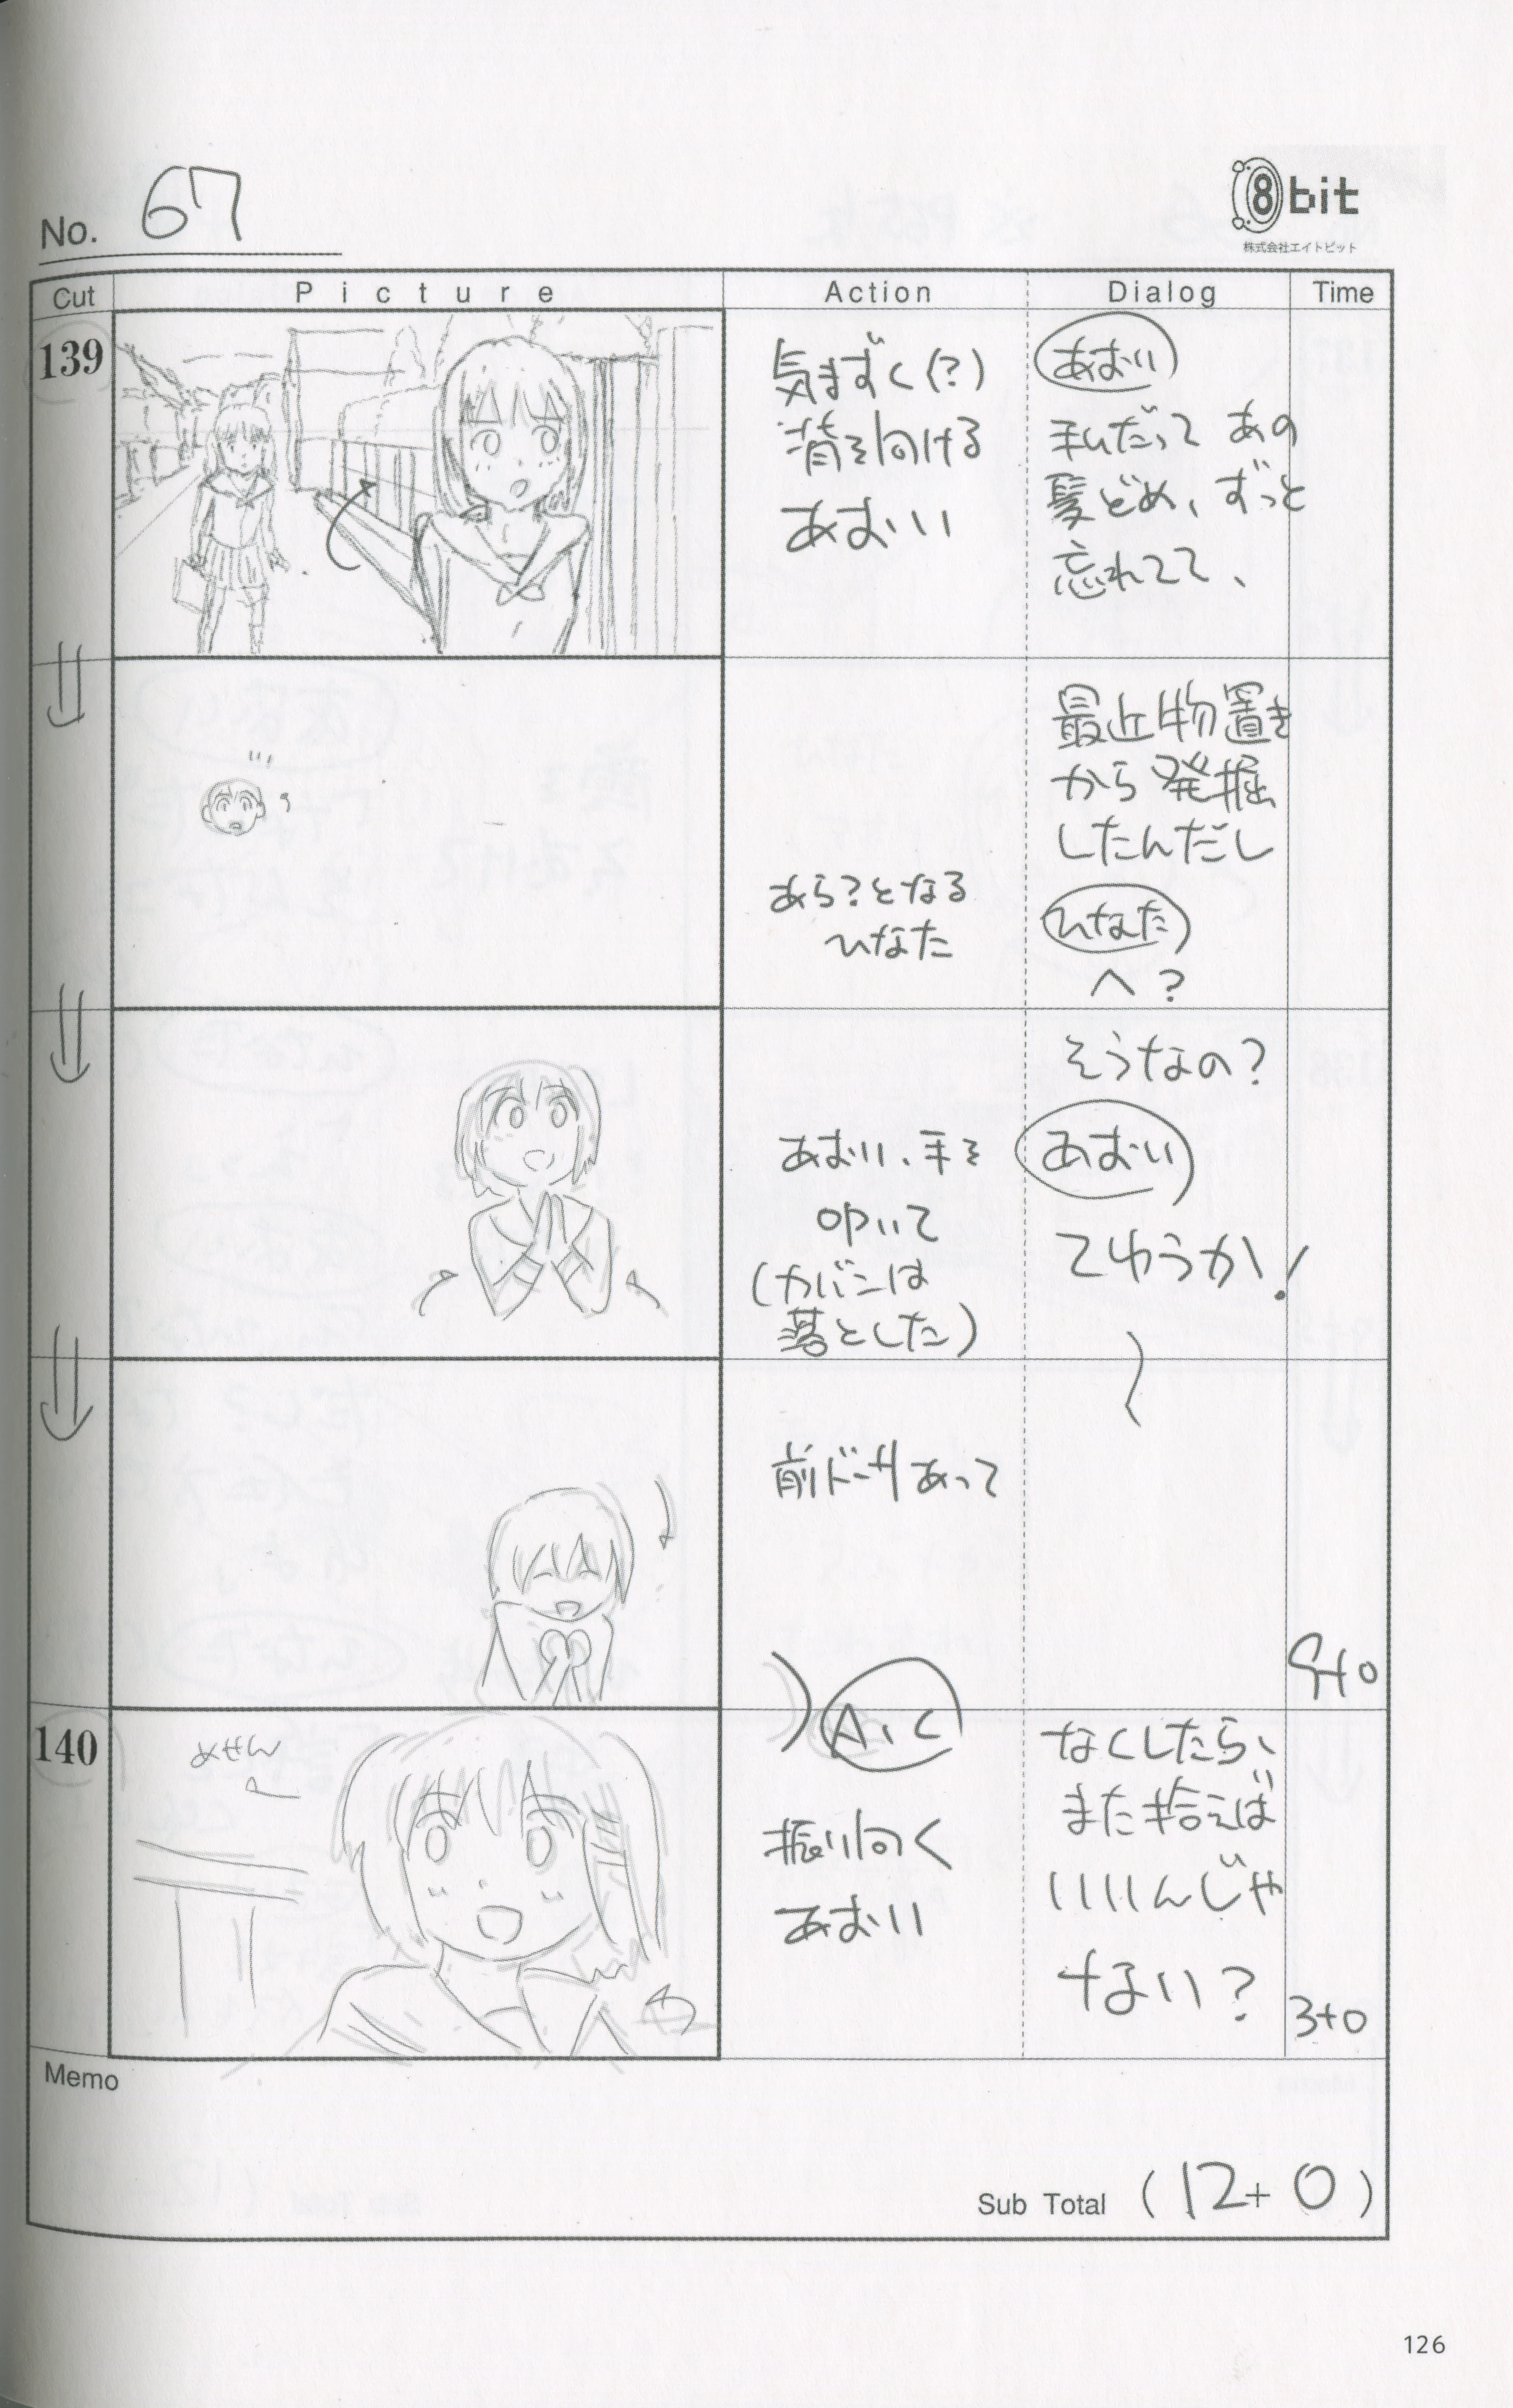 No. 67
8bit
株式会社エイトビット
Cut Picture Action Dialog Time
139
気まずく(?)
背を向ける
あおい
あおい
私だって あの
髪どめ、ずっと
忘れてて、
あら?となる
ひなた
最近物置き
から発掘
したんだし
ひなた
へ?
あおい、手を
叩いて
(カバンは
落とした)
そうなの?
あおい
てゆうか!
前ドーリあって
9+0
140
めせん
A.C
振り向く
あおい
なくしたら、
また拾えば
いいんじゃ
ない?
3+0
Memo
Sub Total (12+0)
126